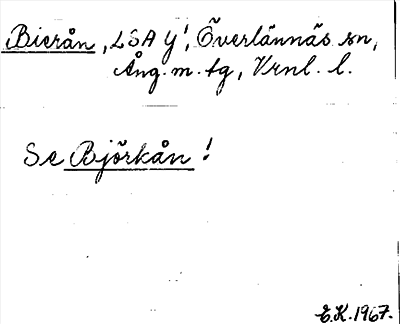 Bierån, LSA Y!, Överlännäs sn,
Ång. m. tg, Vrnl. l.
Se Björkån!
E.K. 1967.